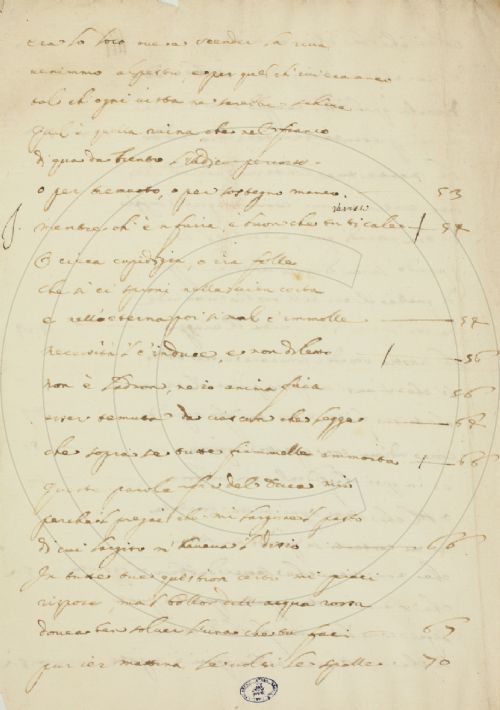 era lo loco ove a scender la riva
venimmo alpestro, e per quel ch'ivi era anco
tal ch'ogni vista ne sarebbe schiva
Qual è quella ruina che nel fianco
di qua da Trento l'Adice percosse
o per tremuoto, o per sostegno manco. 53
mentre ch'è 'n furia, è buon che tu ti cale 54
O cieca cupidigia, o ira folle
che si ci sproni nella vita corta
e nell'eterna poi si mal c'immolle 54
necessità 'l c'induce, e non diletto 56
non è ladron, ne io anima fuia 56
esser temuta da ciascun che legge 64
che sopra se tutte fiammelle ammorta 66
Queste parole fur del Duca mio
perche'l pregai che mi largisse'l pasto
di cui largito m'haveva'l disio 66
In tutte tue question certo mi piaci
rispose, ma'l bollor dell'acqua rossa
dovea ben solver l'una che tu faci 67
pur ier mattina le volsi le spalle 70